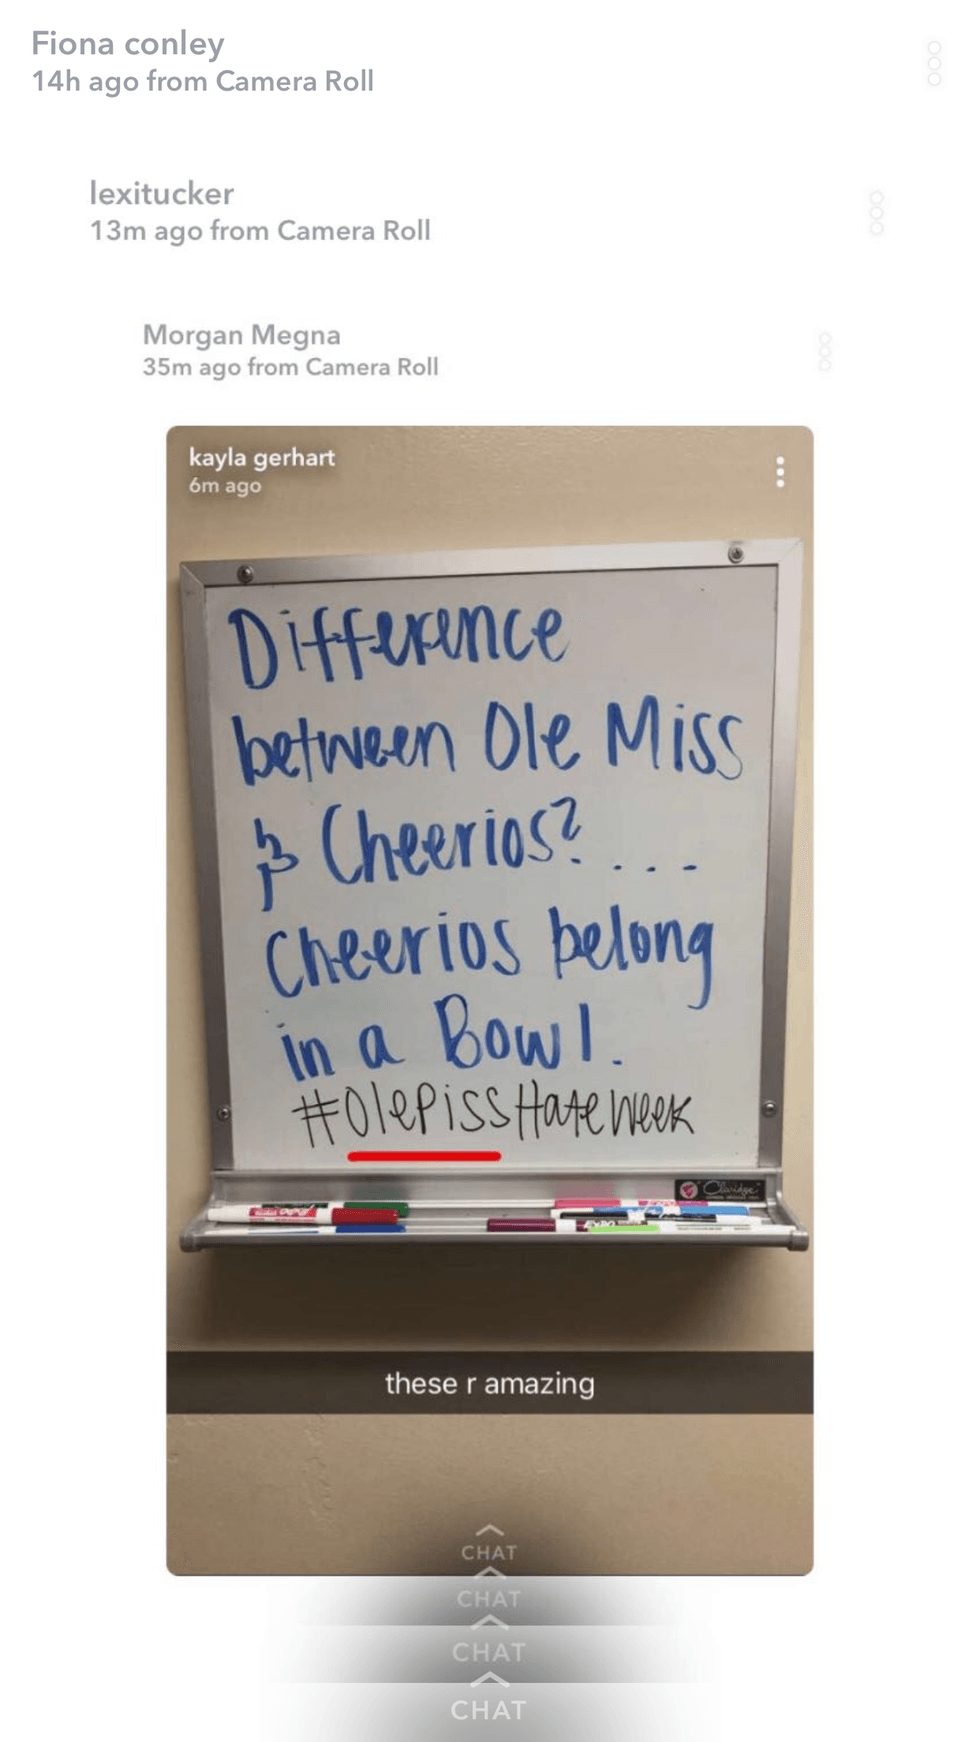 Fiona conley
14h ago from Camera Roll
lexitucker
13m ago from Camera Roll
Morgan Megna
35m ago from Camera Roll
kayla gerhart
6m ago
Difference
between Ole Miss
& Cheerios? ...
Cheerios belong
in a Bowl.
#OlePissHateWeek
Claridge
EXPO
these r amazing
CHAT
CHAT
CHAT
CHAT